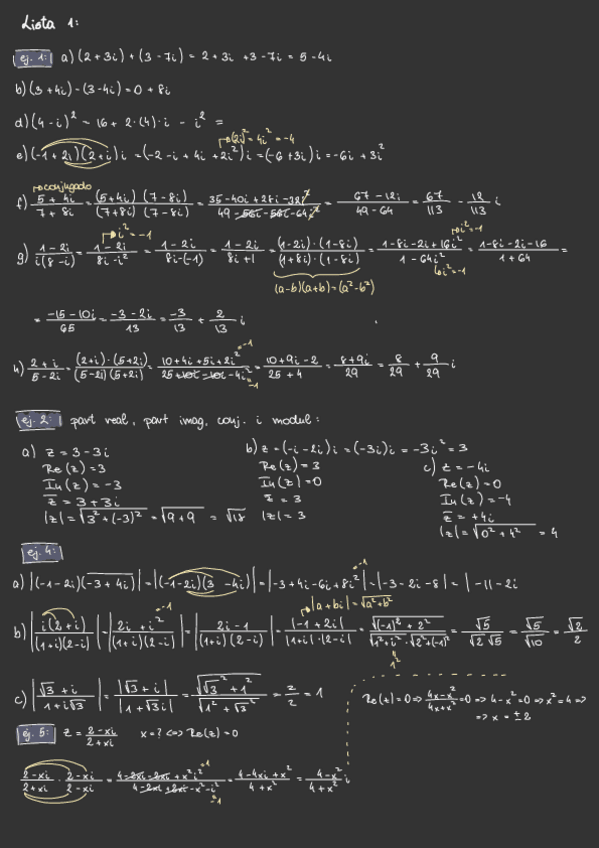 Lista 1:
ej. 1: a) (2+3i) + (3-7i) = 2+3i +3-7i = 5-4i
b) (3+4i) - (3-4i) = 0 + 8i
d) (4-i)² = 16 + 2·(4)·i - i² =
(2i)² = 4i² = -4
e) (-1+2i)(2+i)i = (-2-i+4i+2i²)i = (-6+3i)i = -6i + 3i²
conjugado
f) (5+4i)/(7+8i) = (5+4i)(7-8i)/(7+8i)(7-8i) = = (67-12i)/(49-64) = 67/113 - 12/113 i
i² = -1
g) (1-2i)/(i(8-i)) = (1-2i)/(8i-i²) = (1-2i)/(8i-(-1)) = (1-2i)/(8i+1) = (1-2i)·(1-8i)/(1+8i)·(1-8i) = (1-8i-2i+16i²)/(1-64i²) = (1-8i-2i-16)/(1+64) =
(a-b)(a+b)=(a²-b²)
= (-15-10i)/65 = (-3-2i)/13 = -3/13 + 2/13 i
h) (2+i)/(5-2i) = (2+i)·(5+2i)/(5-2i)(5+2i) = (10+4i+5i+2i²)/(25+10i-10i-4i²) = (10+9i-2)/(25+4) = (8+9i)/29 = 8/29 + 9/29 i
ej. 2: part real, part imag, conj. i modul:
a) z = 3-3i
Re(z) = 3
Im(z) = -3
z̅ = 3+3i
|z| = √(3²+(-3)²) = √(9+9) = √18
b) z = (-i-2i)i = (-3i)i = -3i² = 3
Re(z) = 3
Im(z) = 0
z̅ = 3
|z| = 3
c) z = -4i
Re(z) = 0
Im(z) = -4
z̅ = +4i
|z| = √(0²+4²) = 4
ej. 4:
a) |(-1-2i)(3+4i)| = |(-1-2i)(3-4i)| = |-3+4i-6i+8i²| = |-3-2i-8| = |-11-2i
|a+bi| = √(a²+b²)
b) |i(2+i)/(1+i)(2-i)| = |(2i+i²)/(1+i)(2-i)| = |(2i-1)/(1+i)(2-i)| = |-1+2i|/|1+i|·|2-i| = √((-1)²+2²)/√(1²+i²)·√(2²+(-1)²) = √5/√2√5 = √5/√10 = √2/2
c) |(√3+i)/(1+i√3)| = |√3+i|/|1+√3i| = √(√3²+1²)/√(1²+√3²) = 2/2 = 1
Re(z)=0 => (4-x²)/(4+x²) = 0 => 4-x²=0 => x²=4 =>
=> x = ±2
ej. 5: z = (2-xi)/(2+xi) x=? <=> Re(z)=0
(2-xi)/(2+xi) · (2-xi)/(2-xi) = (4-2xi-2xi+x²i²)/(4-2xi+2xi-x²-i²) = (4-4xi+x²)/(4+x²) = (4-x²)/(4+x²) i